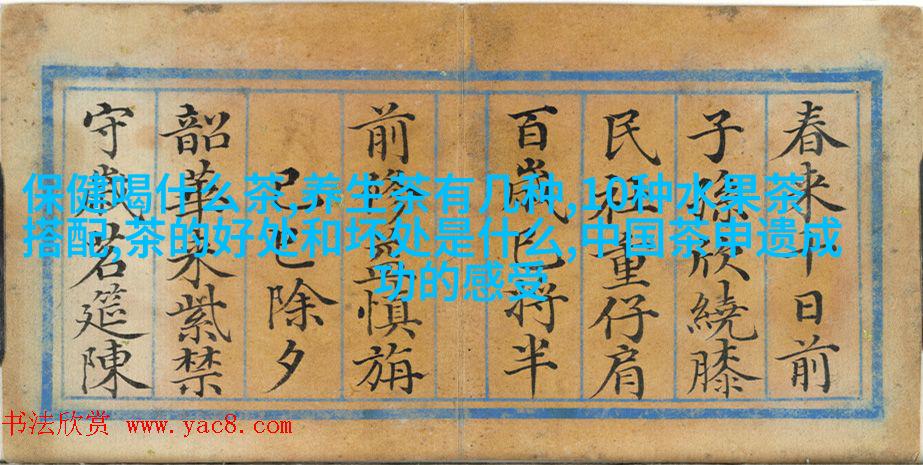 保健喝什么茶,养生茶有几种,10种水果茶
搭配,茶的好处和坏处是什么,中国茶申遗成
功的感受
春来日前
子孫欣繞膝
民社重仔肩
百歲已将半
前益慎旃
己巳除夕
韶華来紫禁
守歲茗筵陳
书法欣赏 www.yac8.com